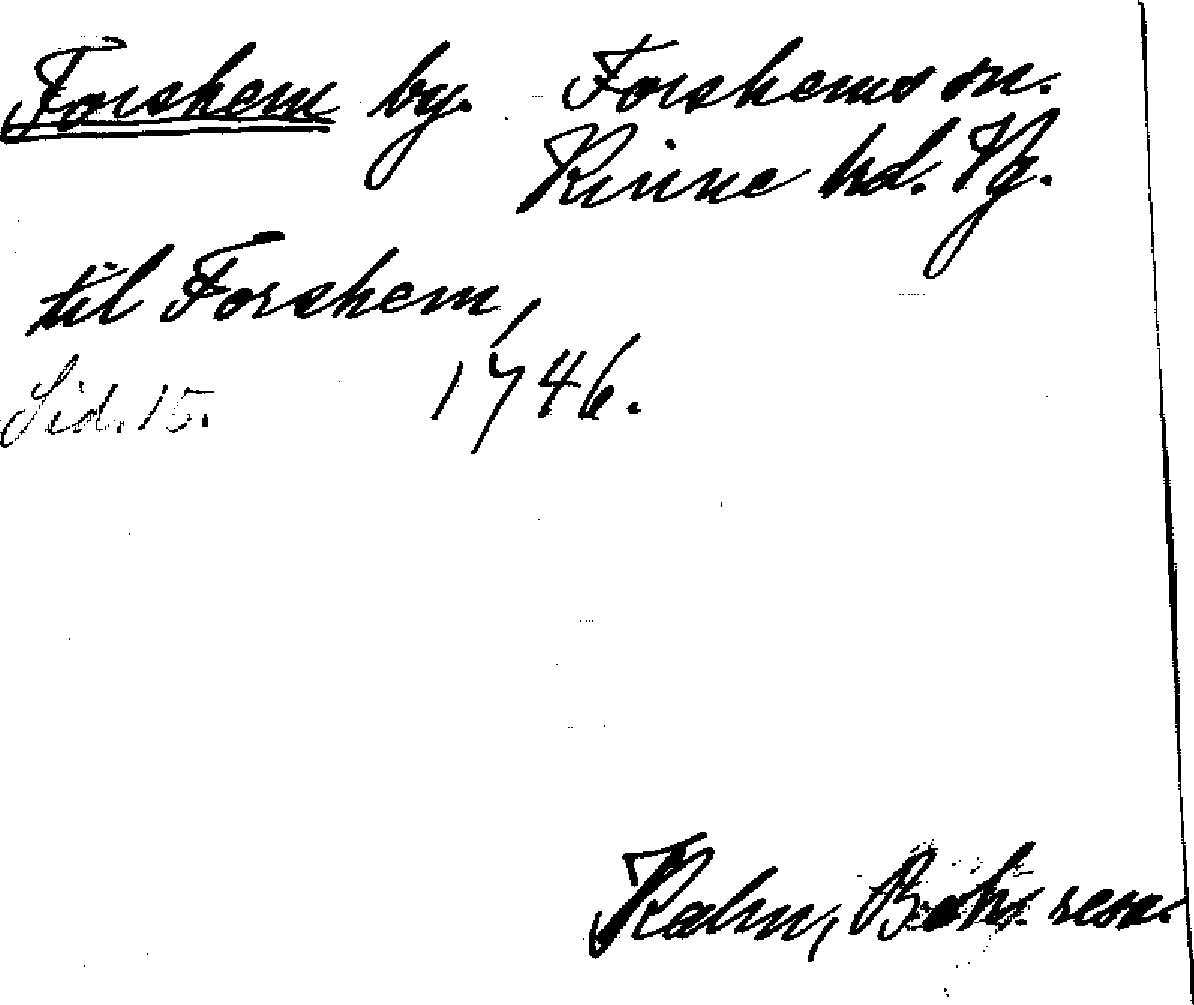 Forshem by. Forshems sn.
Kinne hd. Vg.
til Forshem,
Sid. 15. 1746.
Kalm, Bohs. resa.